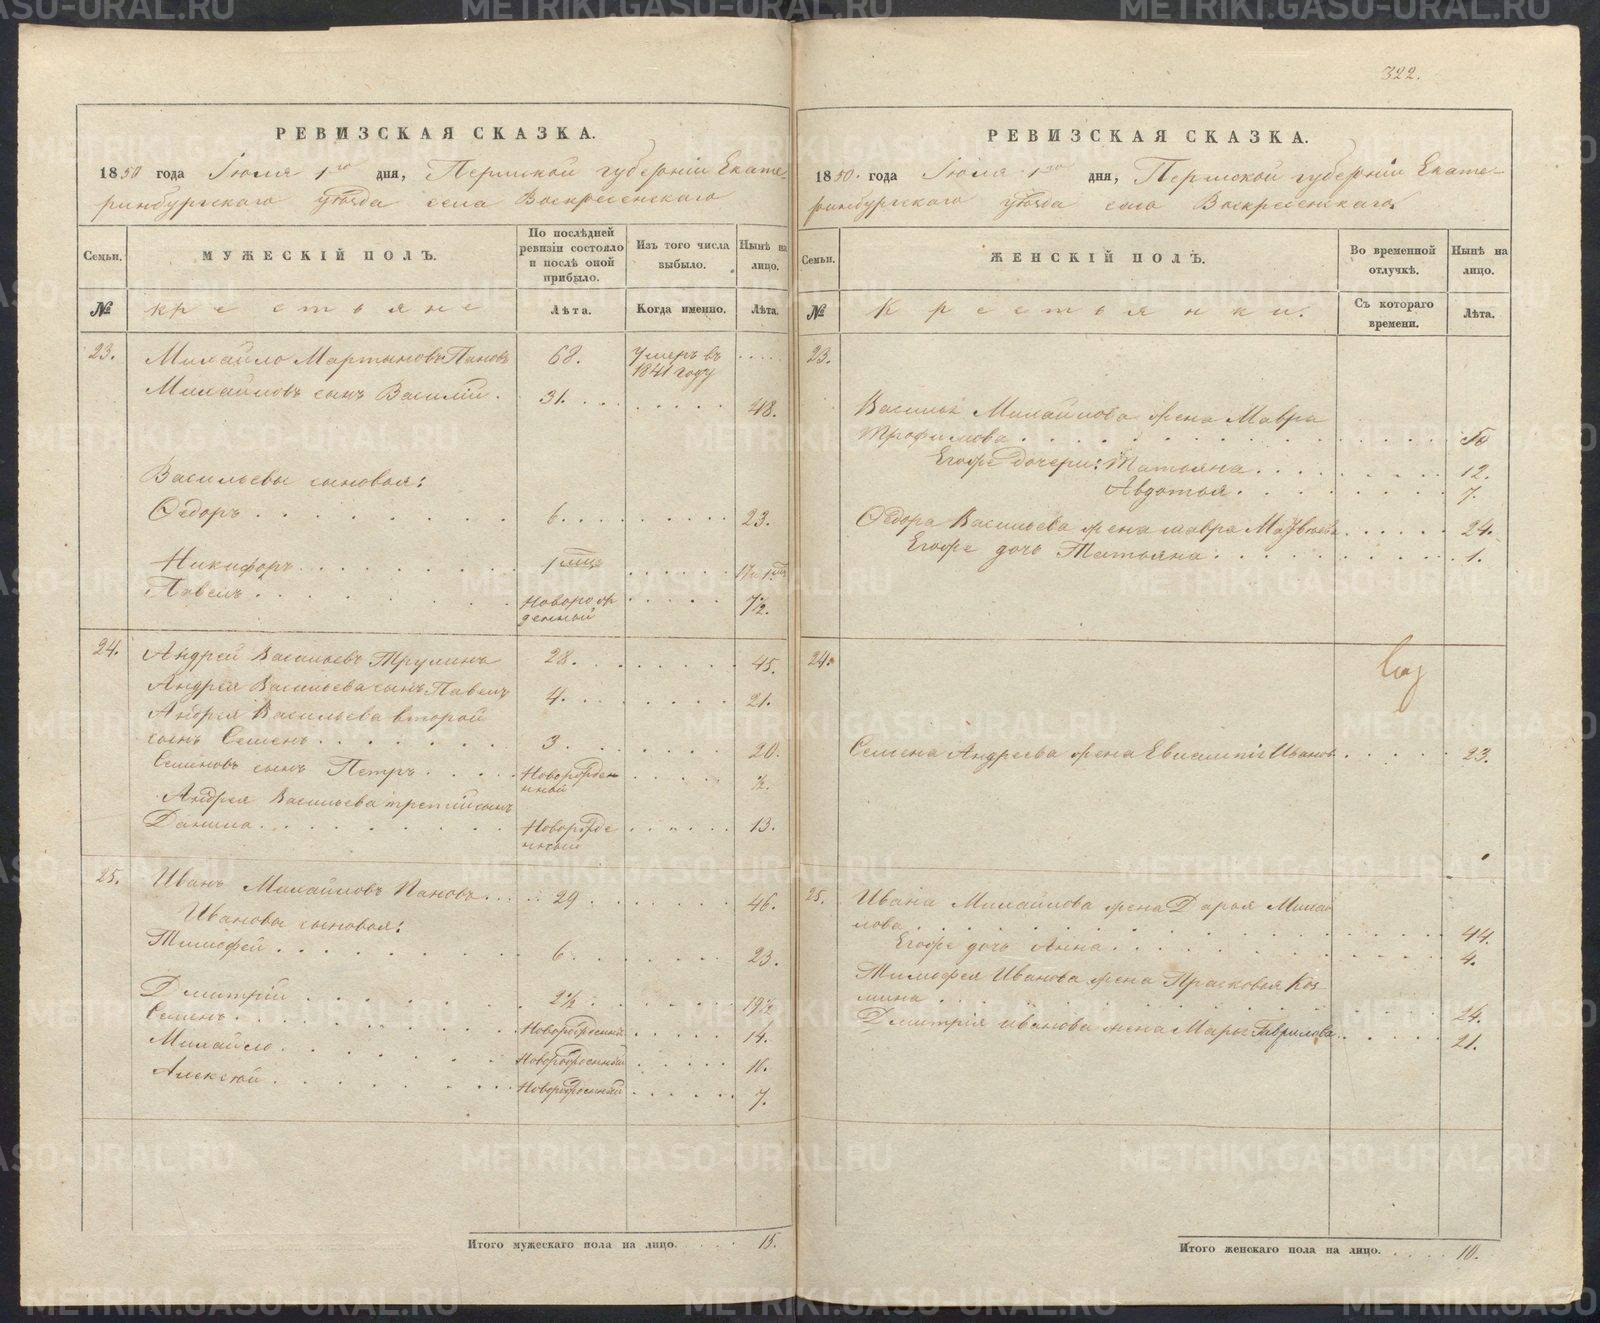 322.
РЕВИЗСКАЯ СКАЗКА.
1850 года Іюля 1го дня, Пермской губерніи Екате-
ринбургскаго уѣзда села Воскресенскаго
Семьи.
МУЖЕСКІЙ ПОЛЪ.
По послѣдней ревизіи состояло и послѣ оной прибыло.
Изъ того числа выбыло.
Нынѣ на лицо.
№
крестьяне
Лѣта.
Когда именно.
Лѣта.
23. Михайло Мартыновъ Пановъ 68. Умеръ въ 1841 году
Михайловъ сынъ Василій. 31. 48.
Васильевы сыновья:
Ѳедоръ 6. 23.
Никифоръ 1 мѣс.
Павелъ Новорожденный 7½.
24. Андрей Васильевъ 28. 45.
Андрея Васильева сынъ Павелъ 4. 21.
Андрея Васильева второй
сынъ Семенъ 3. 20.
Семеновъ сынъ Петръ Новорожденный ½.
Андрея Васильева третій сынъ
Данила Новорожденный 13.
25. Иванъ Михайловъ Пановъ 29 46.
Ивановы сыновья:
Тимофей 6. 23.
Дмитрій 2½. 19½
Семенъ Новорожденный 14.
Михайло Новорожденный 11.
Алексѣй Новорожденный 7.
Итого мужескаго пола на лицо. 15.
РЕВИЗСКАЯ СКАЗКА.
1850. года Іюля 1го дня, Пермской губерніи Екате-
ринбургскаго уѣзда села Воскресенскаго
Семьи.
ЖЕНСКІЙ ПОЛЪ.
Во временной отлучкѣ.
Нынѣ на лицо.
№
Крестьянки.
Съ котораго времени.
Лѣта.
23.
Василья Михайлова жена Мавра
Трофимова 50
Егоже дочери: Татьяна 12.
Авдотья. 7.
Ѳедора Васильева жена Мавра Матвѣева 24.
Егоже дочь Татьяна 1.
24.
Семена Андреева жена Иванов. 23.
25. Ивана Михайлова жена Дарья Михай
лова 44.
Егоже дочь Анна 4.
Тимофея Иванова жена Прасковья Коз
мина 24.
Дмитрія Иванова жена Марья Гаврилова 21.
Итого женскаго пола на лицо. 10.
METRIKI.GASO-URAL.RU